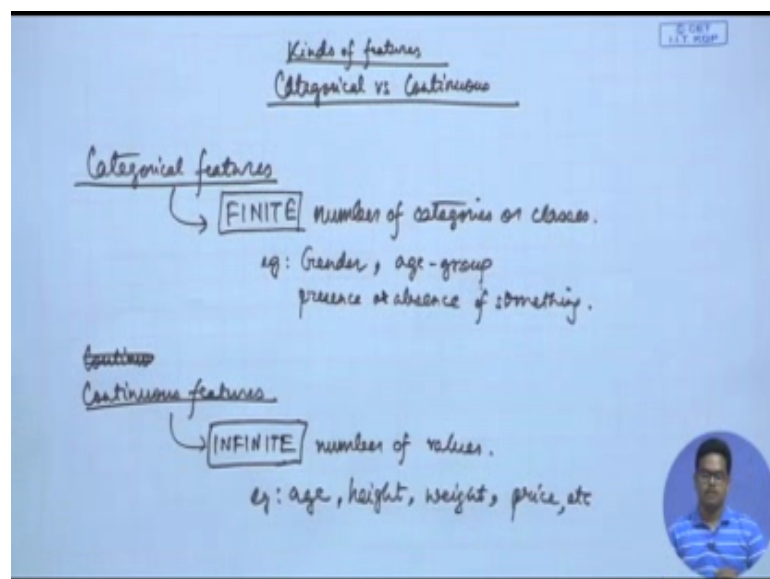 © CET
I.I.T KGP
Kinds of features
Categorical vs Continuous
Categorical features
FINITE number of categories or classes.
eg: Gender, age-group
presence or absence of something.
Continuous features.
INFINITE number of values.
eg: age, height, weight, price, etc